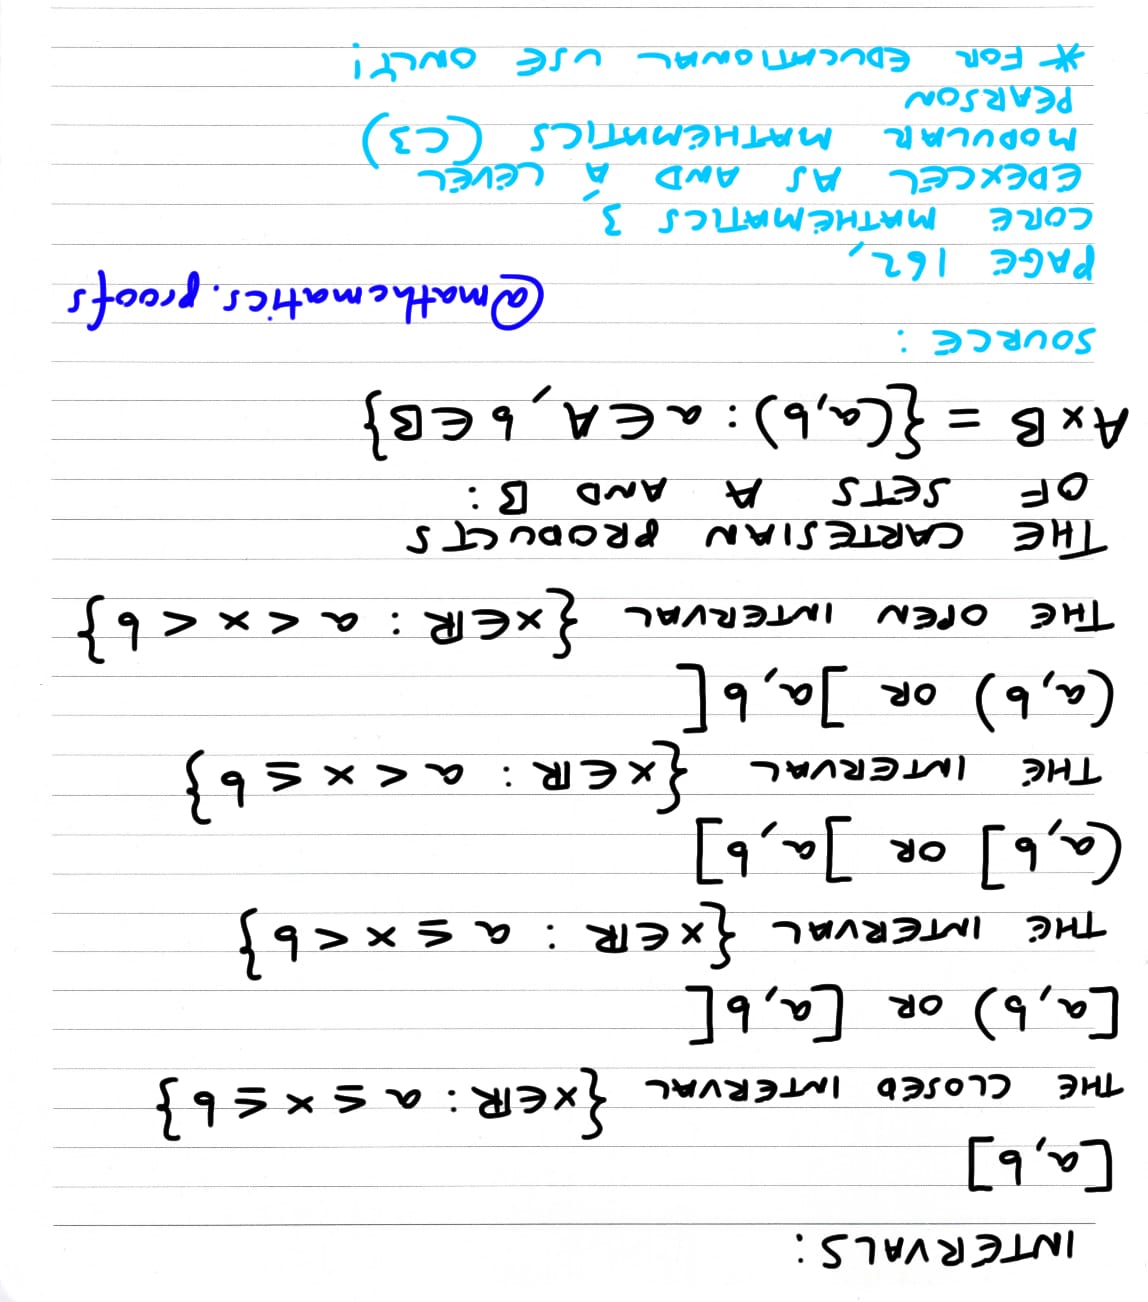 INTERVALS:
[a,b]
THE CLOSED INTERVAL {x∈ℝ: a ≤ x ≤ b}
[a,b) OR [a,b[
THE INTERVAL {x∈ℝ : a ≤ x < b}
(a,b] OR ]a,b]
THE INTERVAL {x∈ℝ : a < x ≤ b}
(a,b) OR ]a,b[
THE OPEN INTERVAL {x∈ℝ : a < x < b}
THE CARTESIAN PRODUCTS
OF SETS A AND B:
A×B = {(a,b): a∈A, b∈B}
SOURCE:
@mathematics.proofs
PAGE 162,
CORE MATHEMATICS 3,
EDEXCEL AS AND A LEVEL
MODULAR MATHEMATICS (C3)
PEARSON
* FOR EDUCATIONAL USE ONLY!